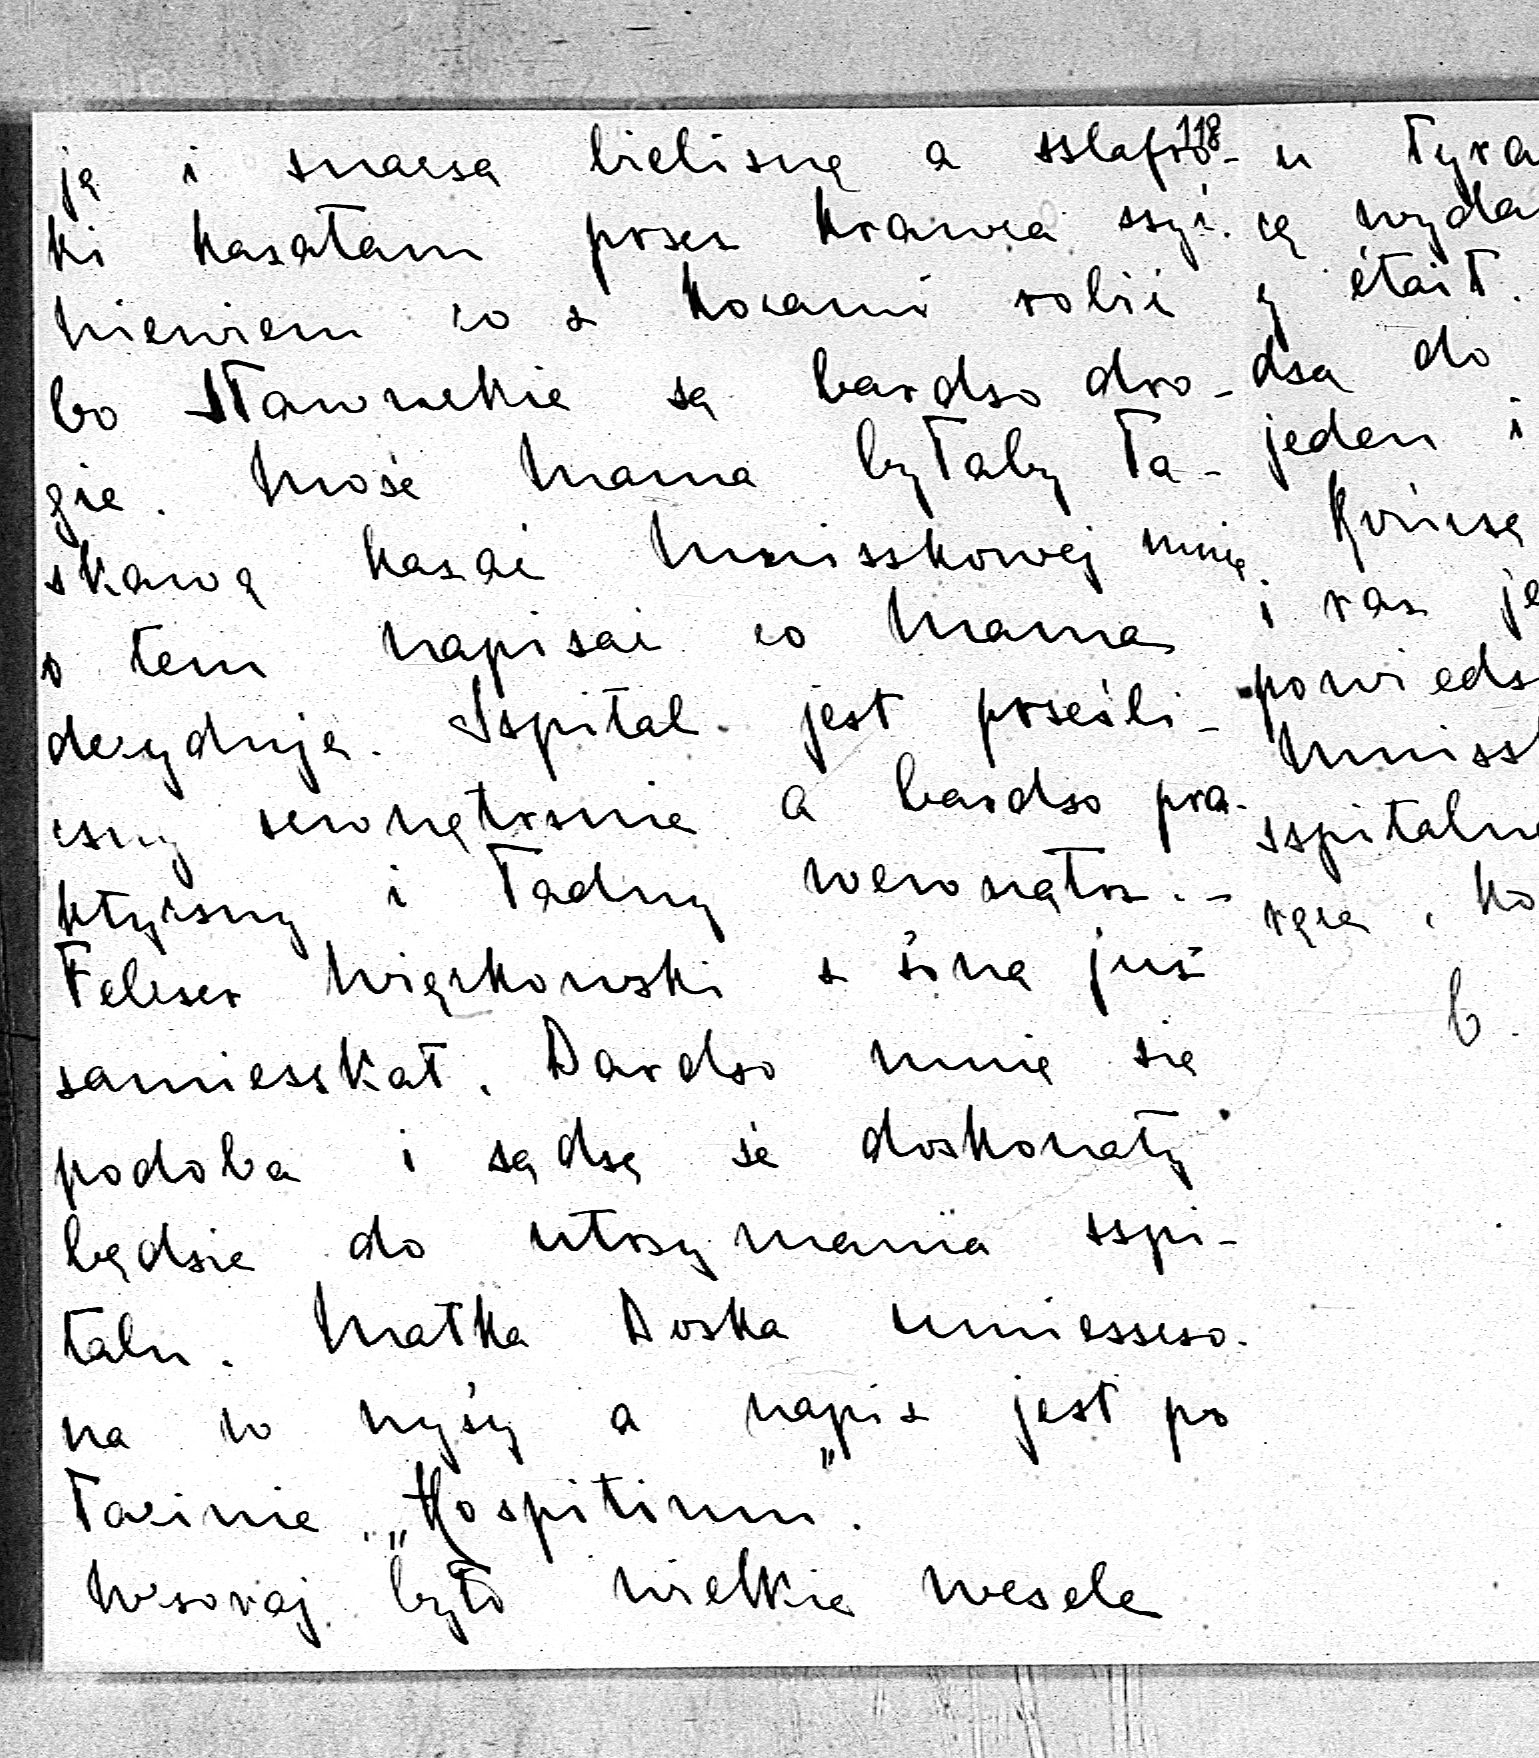 118
ją i znaczą bieliznę a szlafro-
ki kazałam przez krawca szyć.
Niewiem co z kocami robić
bo Sławuckie są bardzo dro-
gie. Może Mama byłaby ła-
skawą kazać Mniszkowej mnie
o tem napisać co Mama
decyduje. Szpital jest prześli-
czny zewnętrznie a bardzo pra-
ktyczny i ładny wewnątrz.-
Felczer Więckowski z żoną już
zamieszkał. Bardzo mnie się
podoba i sądzę że doskonały
będzie do utrzymania szpi-
talu. Matka Boska umieszczo-
na w nyży a napis jest po
łacinie „Hospitium".
Wczoraj było wielkie wesele
u
cą
y était.
dza do
jeden i
Kończę
i raz
szpitaln
ręce, ko
b.